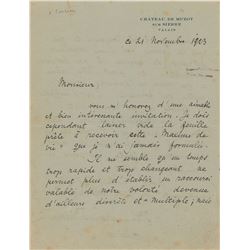 CHÂTEAU DE MUZOT
SUR SIERRE
VALAIS
ce 21 Novembre 1923
Monsieur,
vous m'honorez d'une aimable
et bien intentionnée invitation. Je dois
cependant laisser vide la feuille
prête à recevoir cette "Maxime de
vie" que je n'ai jamais formulé.
Il me semble qu'un temps
trop rapide et trop changeant ne
permet plus d'établir un raccourci
valable de notre volonté devenue
d'ailleurs discrète et "multiple; mais